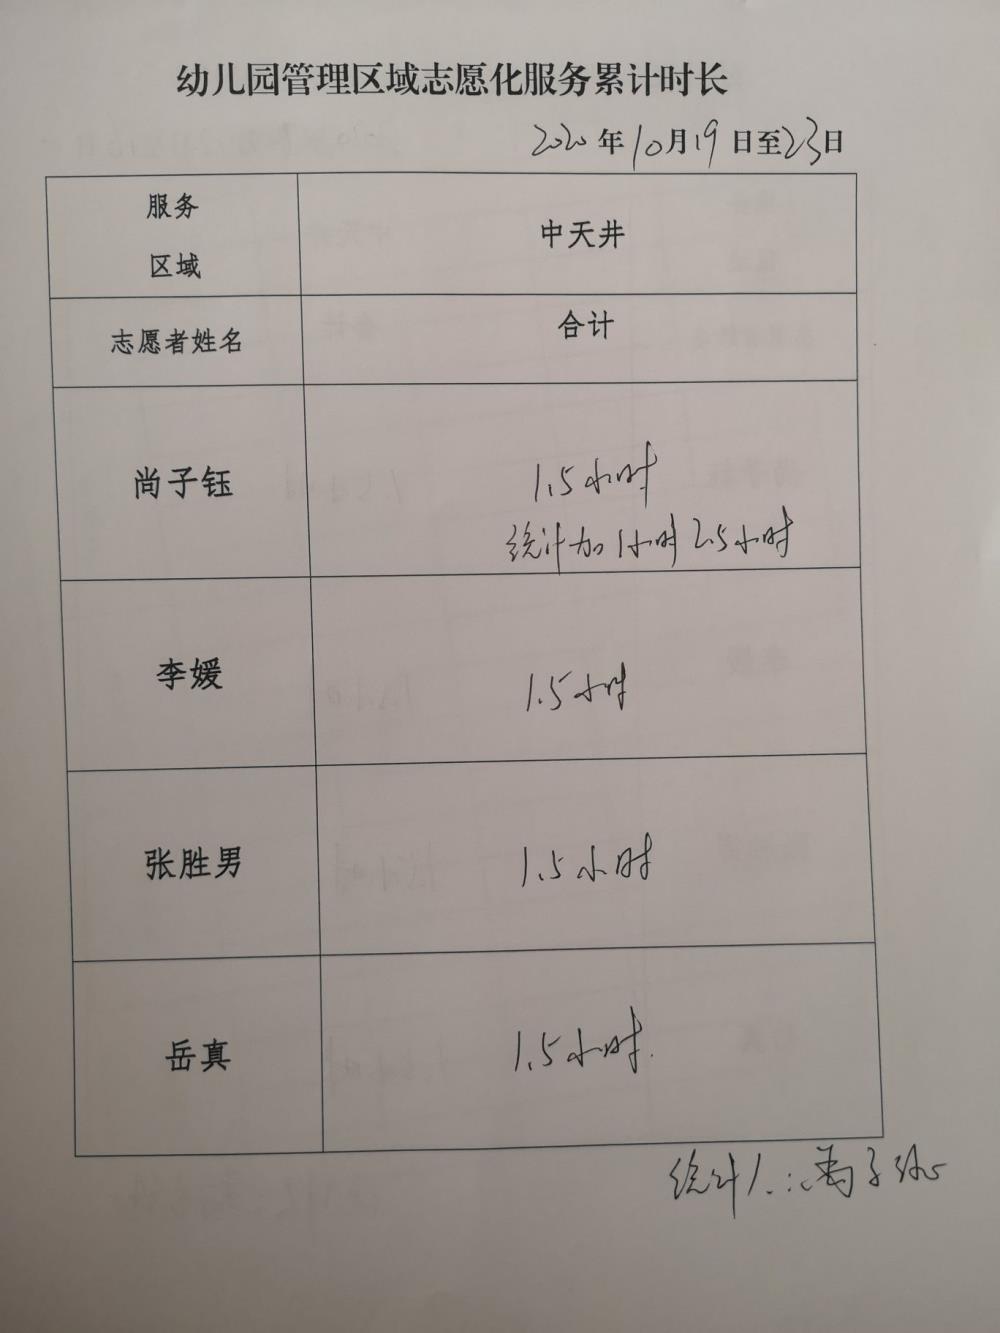 幼儿园管理区域志愿化服务累计时长
2020年10月19日至23日
服务
区域
中天井
志愿者姓名
合计
尚子钰
1.5小时
统计加1小时 2.5小时
李媛
1.5小时
张胜男
1.5小时
岳真
1.5小时.
统计人:尚子钰